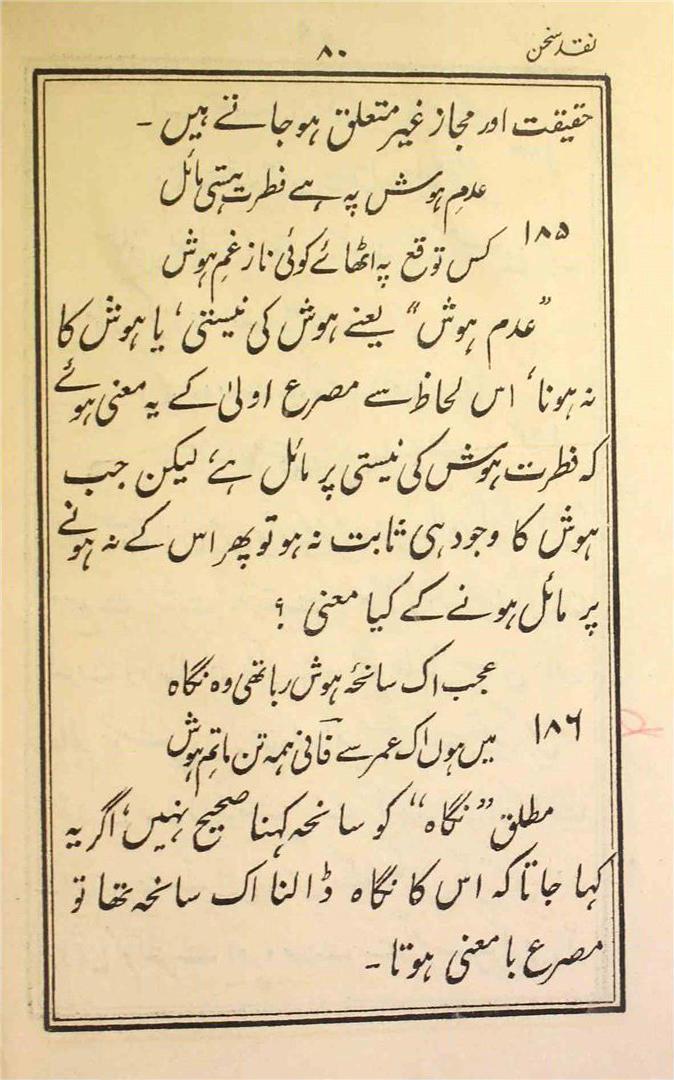 نقد سخن
۸۰
حقیقت اور مجاز غیر متعلق ہو جاتے ہیں ۔
عدمِ ہوش پہ ہے فطرت ہستی مائل
۱۸۵
کس توقع پہ اٹھائے کوئی ناز غمِ ہوش
”عدم ہوش“ یعنے ہوش کی نیستی، یا ہوش کا
نہ ہونا، اس لحاظ سے مصرع اولیٰ کے یہ معنی ہوئے
کہ فطرت ہوش کی نیستی پر مائل ہے، لیکن جب
ہوش کا وجود ہی ثابت نہ ہو تو پھر اس کے نہ ہونے
پر مائل ہونے کے کیا معنی ؟
عجب اک سانحۂ ہوش ربا تھی وہ نگاہ
۱۸۶
میں ہوں اک عمر سے فانی ہمہ تن ماتمِ ہوش
مطلق ”نگاہ“ کو سانحہ کہنا صحیح نہیں، اگر یہ
کہا جاتا کہ اس کا نگاہ ڈالنا اک سانحہ تھا تو
مصرع با معنی ہوتا ۔